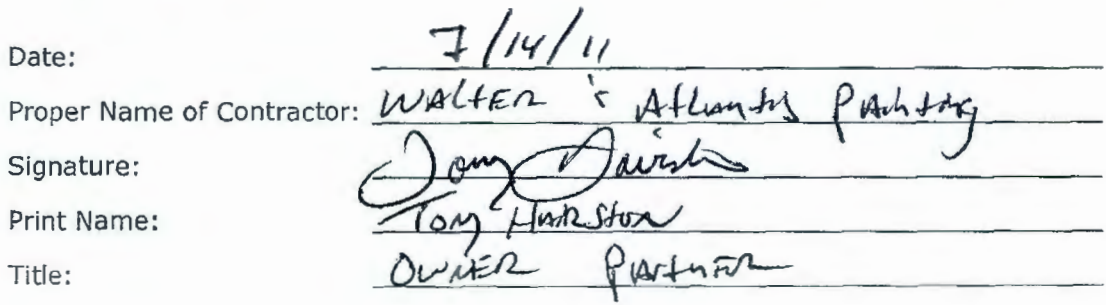 Date: 7/14/11
Proper Name of Contractor: WALTER & Atlantis Painting
Signature:
Print Name: Tom HAIRSTON
Title: OWNER PARTNER